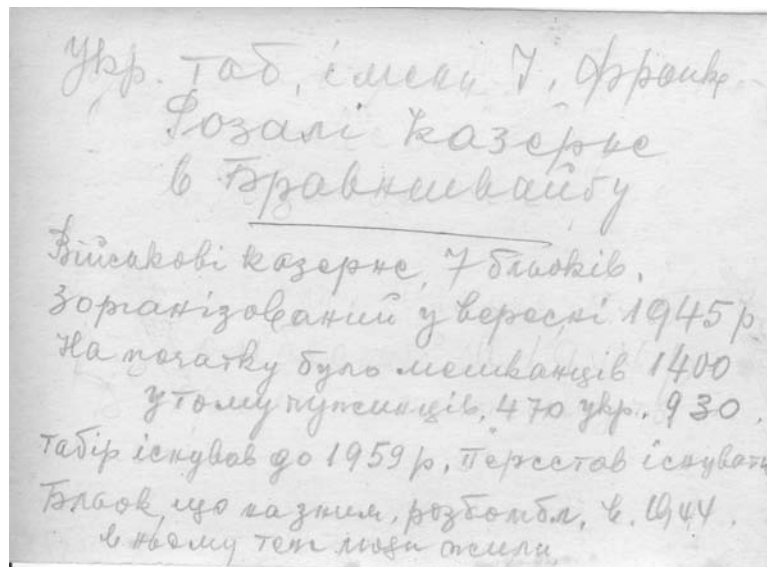 Укр. таб, імени І. Франк
Розалі казерне
в Бравншвайгу
Військові казерне, 7 бльоків.
Зорганізований у вересні 1945 р
На початку було мешканців 1400
у тому чужинців. 470 укр. 930.
табір існував до 1959 р, перестав існувати
Бльок, що на зним, розбомбл. в. 1944.
в ньому теж люди жили